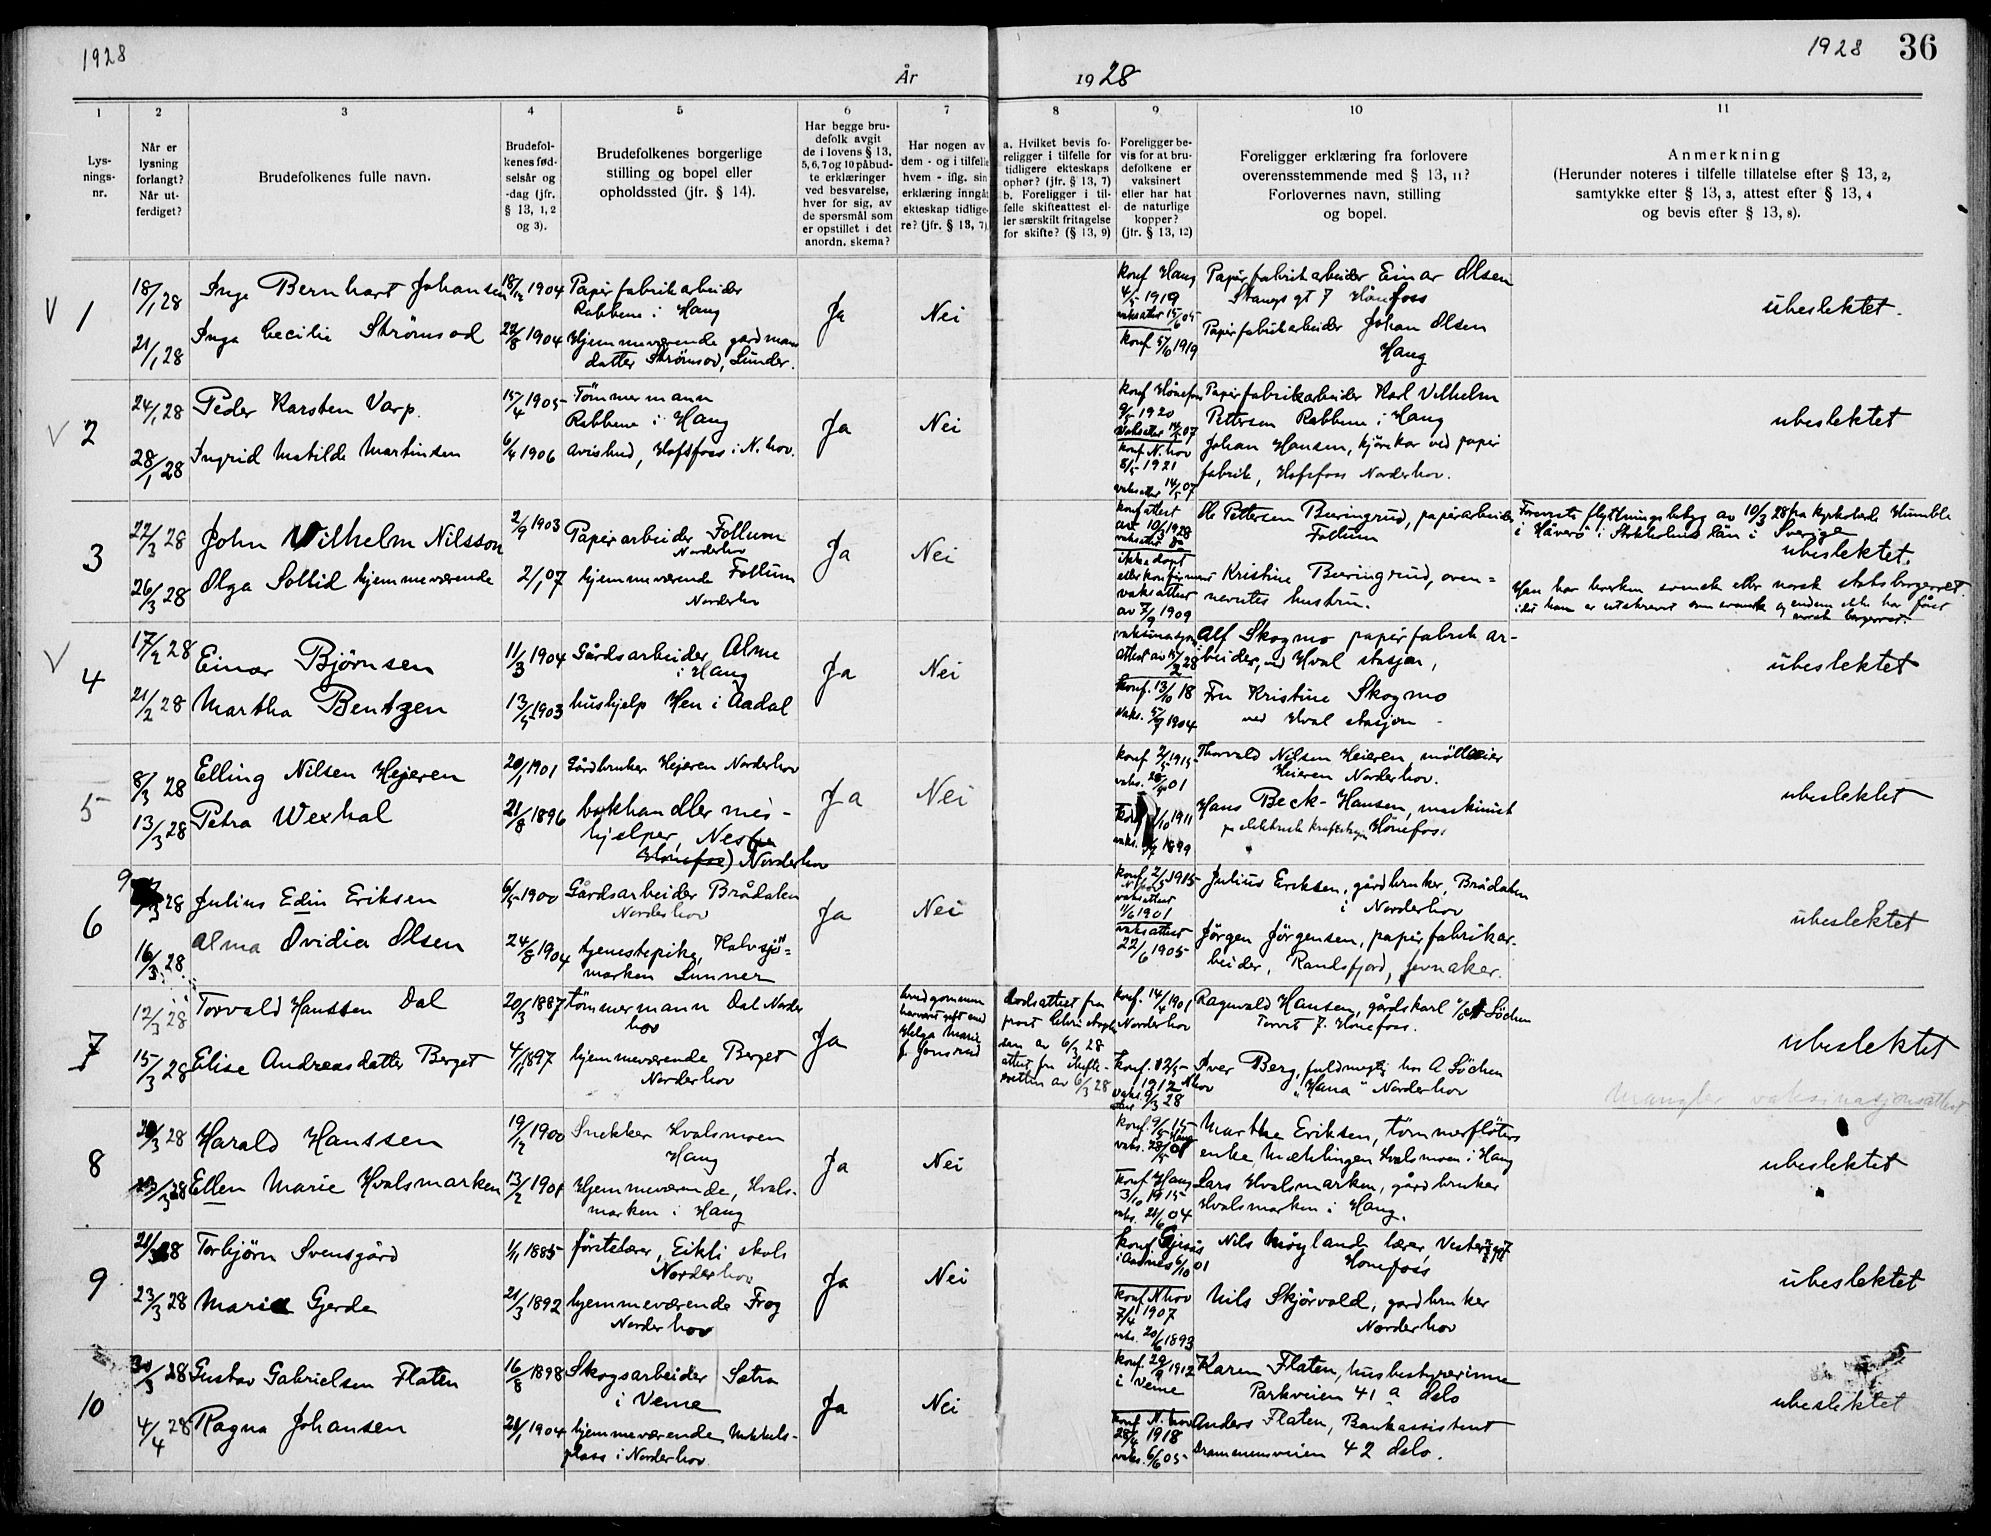 1928
År
1928
1928 36
1
2
3
4
5
6
7
8
9
10
11
Lys-
nings-
nr.
Når er
lysning
forlangt?
Når ut-
ferdiget?
Brudefolkenes fulle navn.
Brudefol-
kenes fød-
selsår og
-dag (jfr.
§ 13, 1, 2
og 3).
Brudefolkenes borgerlige
stilling og bopel eller
opholdssted (jfr. § 14).
Har begge bru-
defolk avgit
de i lovens § 13,
5, 6, 7 og 10 påbud-
te erklæringer
ved besvarelse,
hver for sig, av
de spørsmål som
er opstillet i det
anordn. skema?
Har nogen av
dem - og i tilfelle
hvem - iflg. sin
erklæring inngå
ekteskap tidlige-
re? (jfr. § 13, 7)
a. Hvilket bevis fo-
religger i tilfelle for
tidligere ekteskaps
ophør? (jfr. § 13, 7)
b. Foreligger i til-
felle skifteattest el-
ler særskilt fritagelse
for skifte? (§ 13, 9)
Foreligger be-
vis for at bru-
defolkene er
vaksinert
eller har hat
de naturlige
kopper?
(jfr. § 13, 12)
Foreligger erklæring fra forlovere
overensstemmende med § 13, 11?
Forlovernes navn, stilling
og bopel.
Anmerkning
(Herunder noteres i tilfelle tillatelse efter § 13, 2,
samtykke efter § 13, 3, attest efter § 13, 4
og bevis efter § 13, 8).
V 1
18/1 28
21/1 28
Inge Bernhart Johansen
Inga Cecilie Strømsod
18/12 1904
22/8 1904
Papirfabrikarbeider
Rabbene i Haug
Hjemmeværende gardmans
datter Strømsod, Lunder.
Ja
Nei
konf Haug
4/5 1919
vaksatter 15/6 05
konf 5/10 1919
Papirfabrikarbeider Einar Olsen
Stangs gt 7 Hönefoss
Papirfabrikarbeider Johan Olsen
Haug
übeslektet.
V 2
24/1 28
28/1 28
Peder Karsten Varp.
Ingrid Matilde Martinsen
15/4 1905
6/4 1906
Tömmermann
Rabbene i Haug
avisbud, Hofsfoss i N.hov.
Ja
Nei
konf Hönefoss
9/5 1920
vaksatter 14/5 07
konf N.hov
8/5 1921
vaksatter 14/5 07
Papirfabrikarbeider Karl Vilhelm
Pettersen Rabbene i Haug
Johan Hansen, kjørekar ved papir
fabrik, Hofsfoss Norderhov.
ubeslektet
3
22/3 28
26/3 28
John Wilhelm Nilsson
Olga Sollid hjemmeværende
2/9 1903
2/1 07
Papirarbeider Follum
Norderhov
hjemmeværende Follum
Norderhov
Ja
Nei
konfattest
av 10/3 1928
ikke döpt
eller konfirmert
vaksattest
av 7/9 1909
Ole Pettersen Bæringrud, paperarbeider
Follum
Kristine Bæringrud, oven=
nevntes hustru.
Foreviste flyttningsbetyg av 10/3 28 fra kyrkoherde Humble
i Håverö i Stockholms län i Sverige
ubeslektet.
Han har hverken svensk eller norsk statsborgerret
idet han er utskrevet som svensk og endnu ikke har fått
norsk borgerret.
V 4
17/2 28
21/2 28
Einar Bjørnsen
Martha Bentzen
11/3 1904
13/5 1903
Gårdsarbeider Alme
i Haug
hushjelp Hen i Aadal
Ja
Nei
vaksinasjons
attest av 15/2 28
konf. 13/10 18
vaks. 5/9 1904
Alf Skogmo papirfabrik ar-
beider, ved Hval stasjon,
Fru Kristine Skogmo
ved Hval stasjon
übeslektet
5
8/3 28
13/3 28
Elling Nilsen Hejeren
Petra Wexhal
20/1 1901
21/8 1896
Gårdbruker Hejeren Norderhov
bokhandlermed-
hjelper, Nes
Hönefoss) Norderhov
Ja
Nei
konf 2/5 1915
/10 1911
vaks. 1899
Thorvald Nilsen Heieren, mölleeier
Heieren Norderhov.
Hans Beck-Hansen, maskinist
Hönefoss
ubeslektet
6
9/3 28
16/3 28.
Julius Edin Eriksen
Alma Ovidia Olsen
6/5 1900
24/8 1904
Gårdsarbeider Brådalen
Norderhov
tjenestepike, Kalvsjö=
marken Lunner
Ja
Nei
konf 2/5 1915
N.hov
vaksattest
11/6 1901
vaksattest
22/6 1905
Julius Eriksen, gårdbruker, Brådalen
i Norderhov
Jørgen Jørgensen, papirfabrikar-
beider, Randsfjord, Jevnaker.
übeslektet
7
12/3 28
15/3 28
Torvald Hanssen Dal
Elise Andreasdatter Berget
20/3 1887
4/1 1897
tømmermann Dal Norder
hov
hjemmeværende Berget
Norderhov
Ja
brudgommen
har vært gift med
Helga Marie
f. Jonsrud
dødsattest fra
prost
sen av 6/3 28
attest fra skifte-
retten av 6/3 28
konf. 14/4 1901
Norderhov
konf. 12/5
1912 Nhov
vaks. 9/3 28
Ragnvald Hansen, gårdskarl A Söchen
Torvet 7. Hönefoss.
Iver Berg, fuldmegtig hos A Söchen
"Hana" Norderhov
ubeslektet
Mangler vaksinasjonsattest
8
20/3 28
23/3 28
Harald Hanssen
Ellen Marie Hvalsmarken
19/12 1900
13/2 1901
Snekker Hvalsmoen
Haug
Hjemmeværende, Hvals-
marken i Haug
Ja
Nei
konf. 9/5 15
Haug
vaks. 28/5 01
konf Haug
3/10 1915
vaks. 21/6 04
Marthe Eriksen, tømmerfløters
enke Mæhlingen Hvalsmoen i Haug
Lars Hvalsmarken, gårdbruker
Hvalsmarken i Haug.
ubeslektet
9
21/3 28
23/3 28
Torbjørn Svensgård
Marie Gjerde
1/1 1885
21/3 1892
förstelærer, Eikli skole
Norderhov
hjemmeværende Frog
Norderhov
Ja
Nei
konf.
6/10 01
konf Nhov
7/4 1907
vaks. 20/6 1893
Nils Möyland lærer,
Hönefoss
Nils Skjørvold, gardbruker
Norderhov
übeslektet
10
30/3 28
4/4 28
Gustav Gabrielsen Flaten
Ragna Johansen
16/8 1898
21/1 1904
Skogsarbeider Setra
i Veme
hjemmeværende Mikkels-
plass i Norderhov.
Ja
Nei
konf. 29/9 1912
i Veme
konf N.hov
28/4 1918
vaks. 6/6 05
Karen Flaten, husbestyrerinne
Parkveien 41 a Oslo
Anders Flaten, Bankassistent
Drammensveien 42 Oslo.
ubeslektet